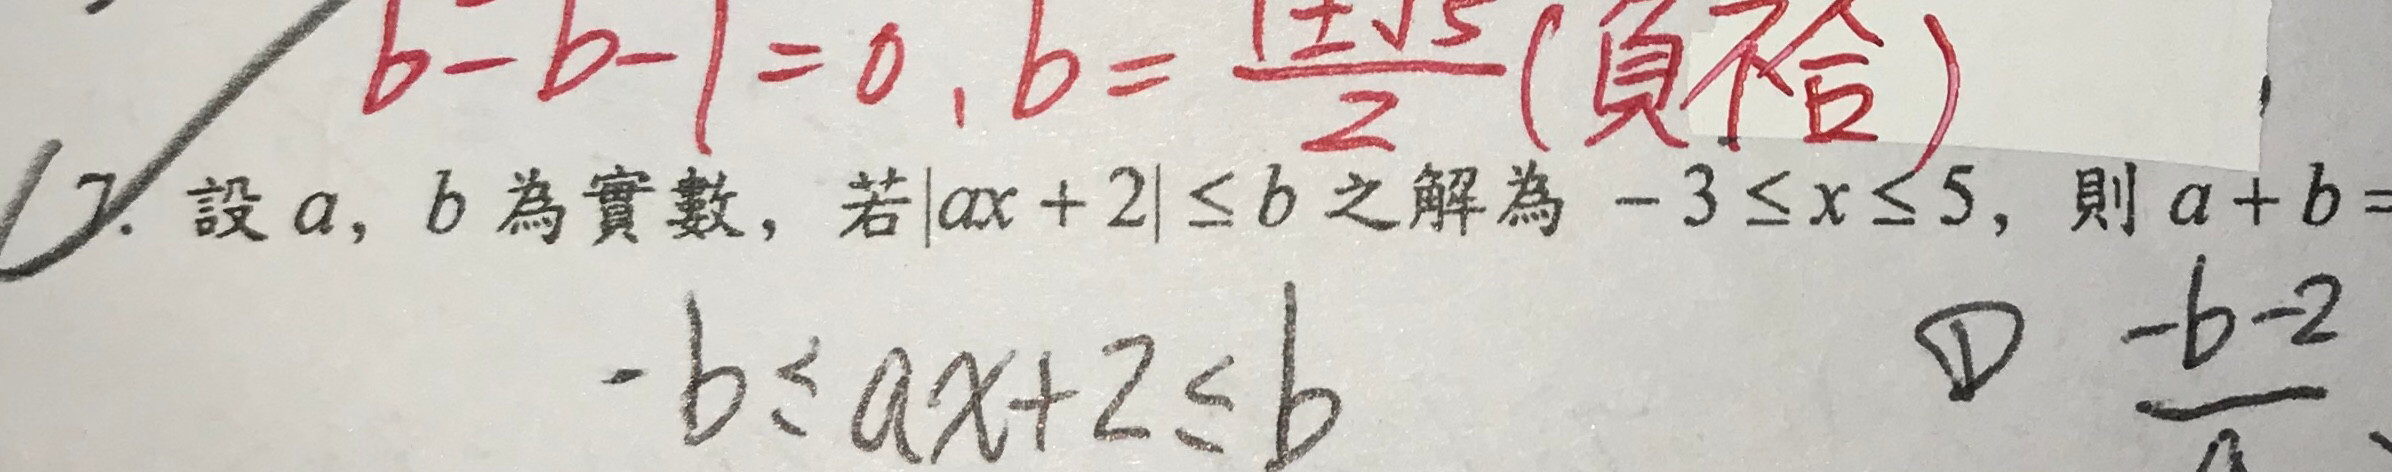 b-b-1=0, b=\frac{1±√5}{2}(負不合)
17. 設 a, b 為實數, 若|ax+2|≤b 之解為 -3≤x≤5, 則 a+b=
-b≤ax+2≤b ① \frac{-b-2}{a}